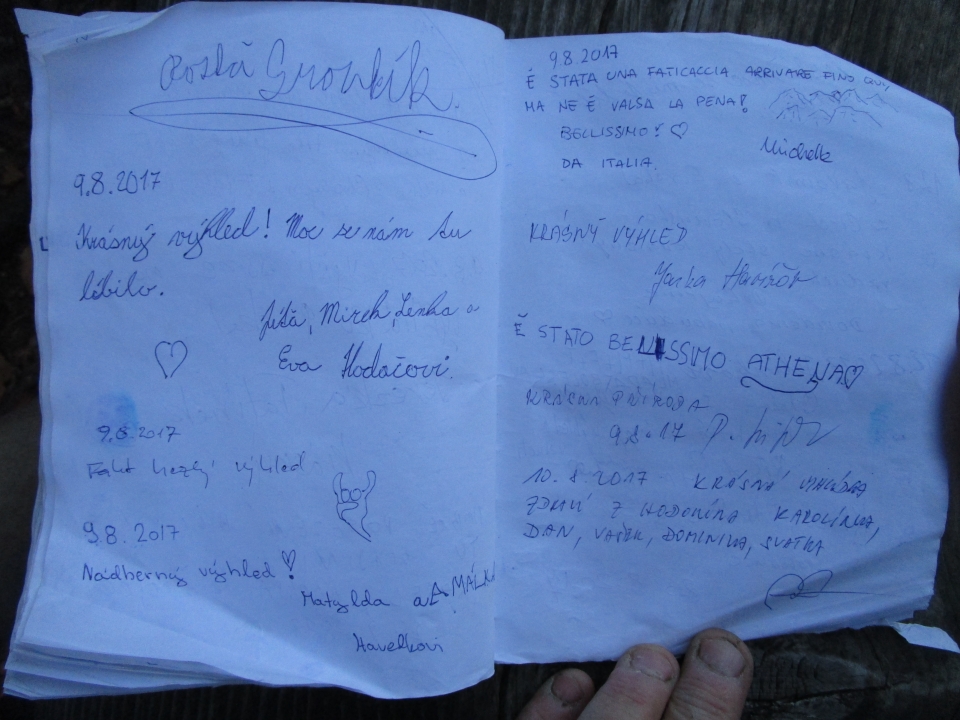 Rosťa
9.8.2017
Krásný výhled! Moc se nám tu
líbilo.
Míťa, Mirek, Lenka a
Eva Hodačovi.
9.8.2017
Fakt hezký výhled
9.8.2017
Nádherný výhled!
Matylda a AMÁLKA
Havelkovi
9.8.2017
É STATA UNA FATICACCIA ARRIVARE FINO QUI,
MA NE É VALSA LA PENA!
BELLISSIMO!
DA ITALIA.
Michela
KRÁSNÝ VÝHLED
Jarka
É STATO BELLISSIMO ATHENA
KRÁSNÁ PŘÍRODA
9.8.17 P.
10.8.2017 KRÁSNÁ VYHLÍDKA
ZDRAVÍ Z HODONÍNA KAROLÍNKA,
DAN, VAŠEK, DOMINIKA, SVATKA